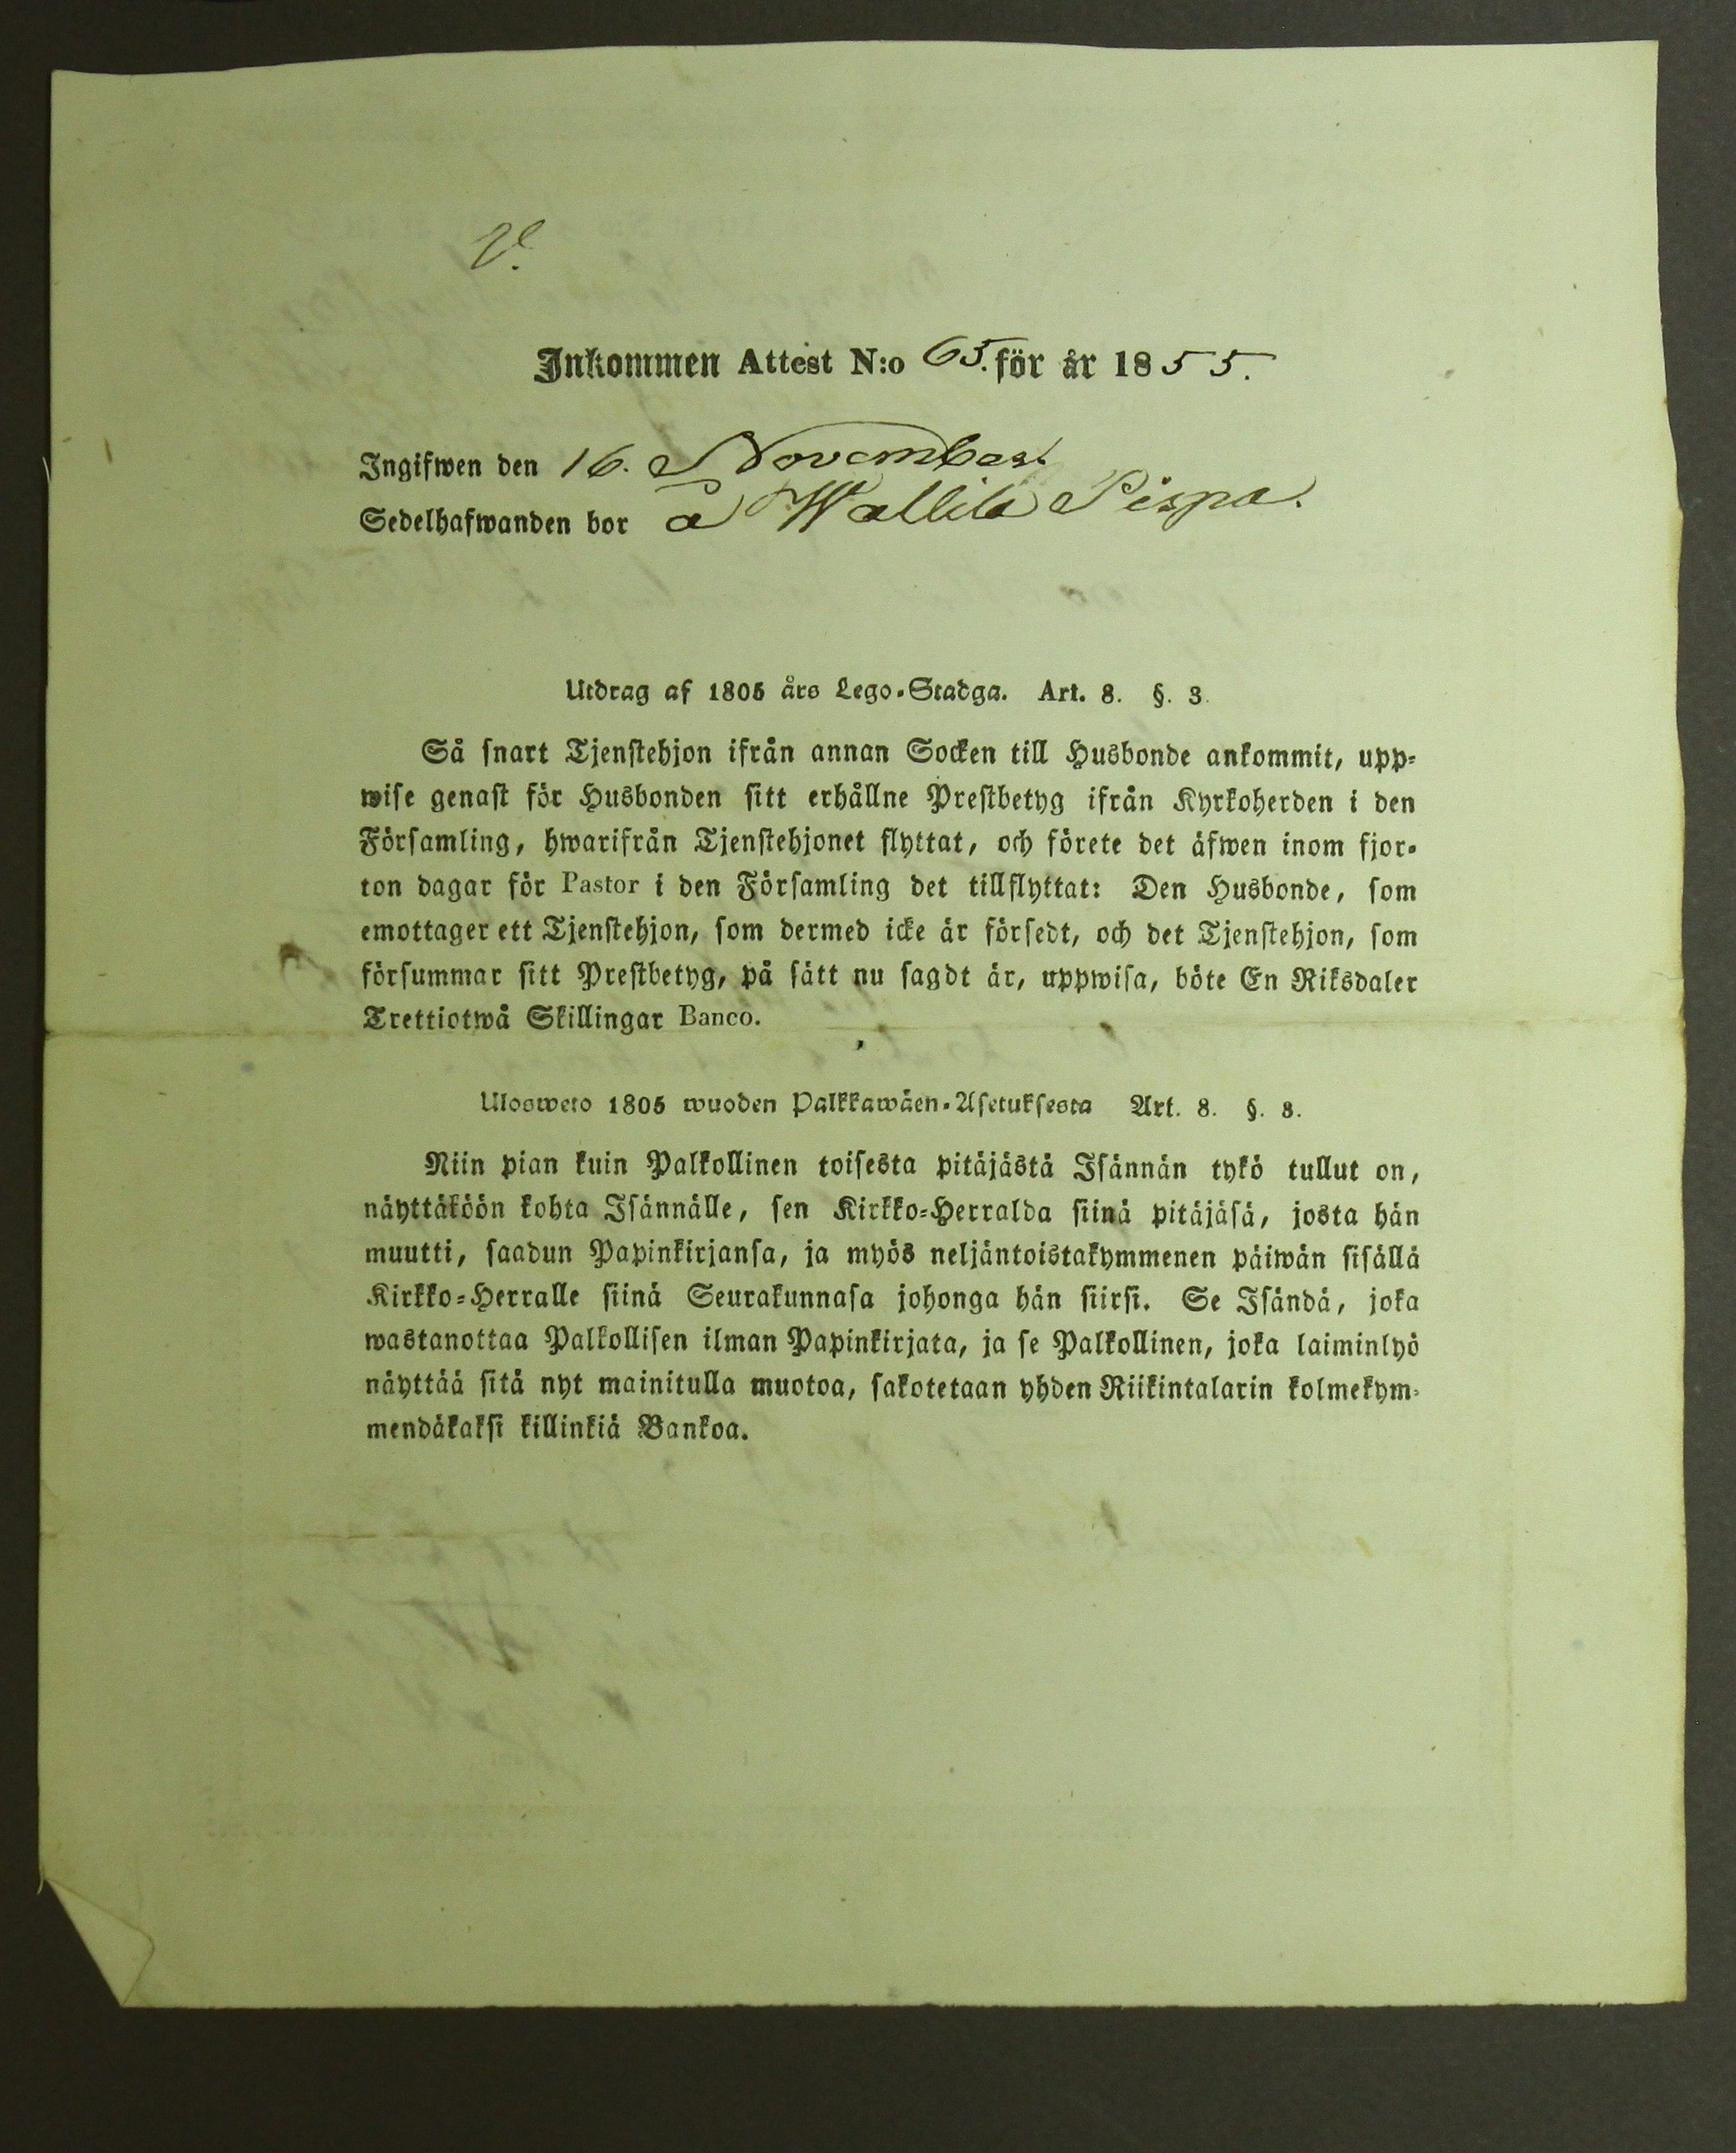 V.
Inkommen Attest N:o 65. för år 1855.
Ingifwen den 16. November.
Sedelhafwanden bor å Wallila Pispa.
Utdrag af 1805 års Lego-Stadga. Art. 8. §. 3.
Så snart Tjenstehjon ifrån annan Socken till Husbonde ankommit, upp-
wise genast för Husbonden sitt erhållne Prestbetyg ifrån Kyrkoherden i den
Församling, hwarifrån Tjenstehjonet flyttat, och förete det äfwen inom fjor-
ton dagar för Pastor i den Församling det tillflyttat: Den Husbonde, som
emottager ett Tjenstehjon, som dermed icke är försedt, och det Tjenstehjon, som
försummar sitt Prestbetyg, på sätt nu sagdt är, uppwisa, böte En Riksdaler
Trettiotwå Skillingar Banco.
Ulosweto 1805 wuoden Palkkawäen-Asetuksesta Art. 8. §. 3.
Niin pian kuin Palkollinen toisesta pitäjästä Isännän tykö tullut on,
näyttäköön kohta Isännälle, sen Kirkko-Herralda siinä pitäjäsä, josta hän
muutti, saadun Papinkirjansa, ja myös neljäntoistakymmenen päiwän sisällä
Kirkko-Herralle siinä Seurakunnasa johonga hän siirsi. Se Isändä, joka
wastanottaa Palkollisen ilman Papinkirjata, ja se Palkollinen, joka laiminlyö
näyttää sitä nyt mainitulla muotoa, sakotetaan yhden Riikintalarin kolmekym-
mendäkaksi killinkiä Bankoa.